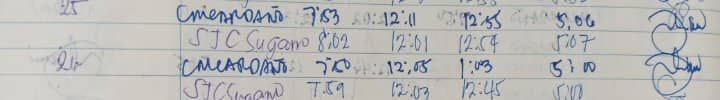 25 CMERROAÑO 7:53 12:11 12:55 5:06
SJCSugano 8:02 12:01 12:54 5:07
7:50 12:05 1:03 5:00
SJCSugano 7:59 12:03 12:45